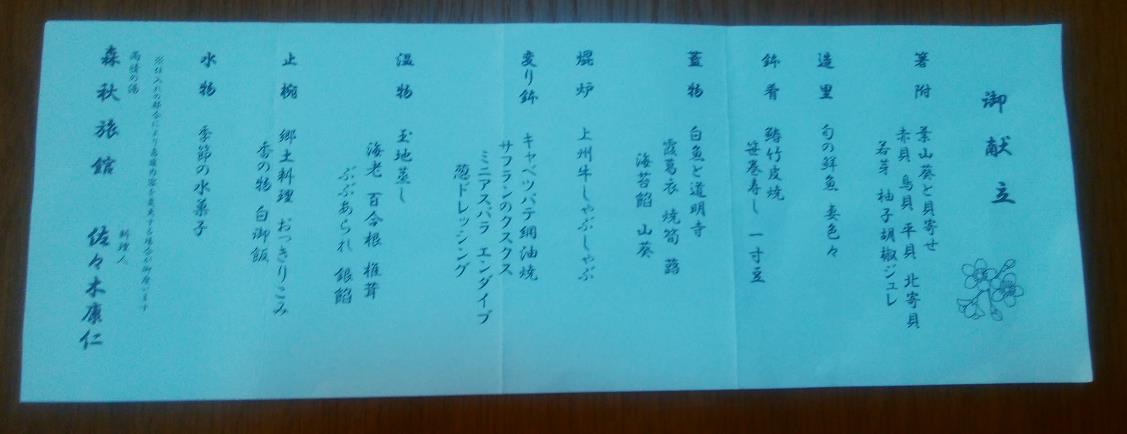 御献立
箸附　葉山葵と貝寄せ
赤貝　鳥貝　平貝　北寄貝
若芽　柚子胡椒ジュレ
造里　旬の鮮魚　妻色々
鉢肴　鰆竹皮焼
笹巻寿し　一寸豆
蓋物　白魚と道明寺
霞葛衣　焼筍　蕗
海苔餡　山葵
焜炉　上州牛しゃぶしゃぶ
変り鉢　キャベツパテ網油焼
サフランのクスクス
ミニアスパラ　エンダイブ
葱ドレッシング
温物　玉地蒸し
海老　百合根　椎茸
ぶぶあられ　銀餡
止椀　郷土料理　おっきりこみ
香の物　白御飯
水物　季節の水菓子
※仕入れの都合により若干内容を変更する場合が御座います
雨情の湯
森秋旅館　料理人　佐々木康仁